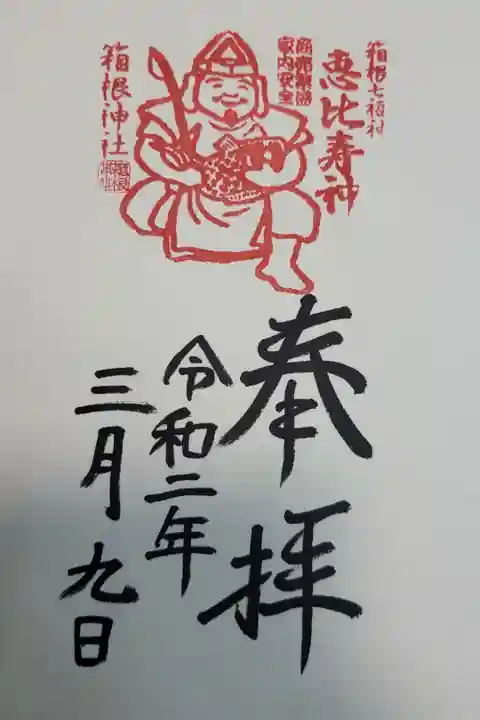 箱根七福神
恵比寿神
商売繁盛
家内安全
箱根神社
奉拝
令和二年
三月九日